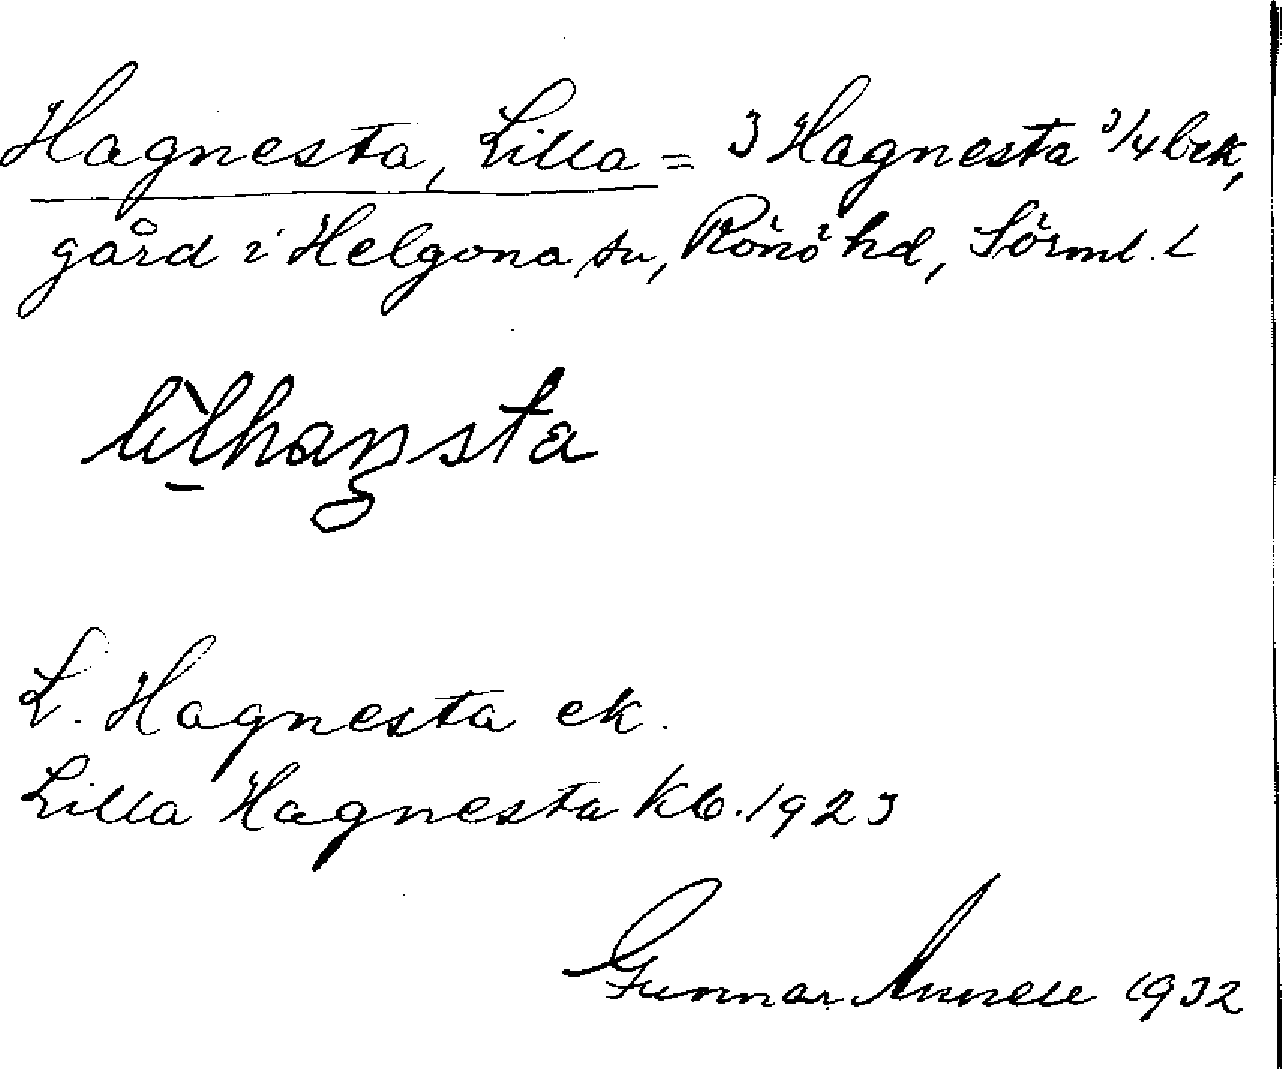 Hagnesta, Lilla = 3 Hagnesta 3/4 brk,
gård i Helgona sn, Rönö hd, Sörml. L
lìl̠haŋsta
L. Hagnesta ek.
Lilla Hagnesta kb. 1923
Gunnar Annell 1932